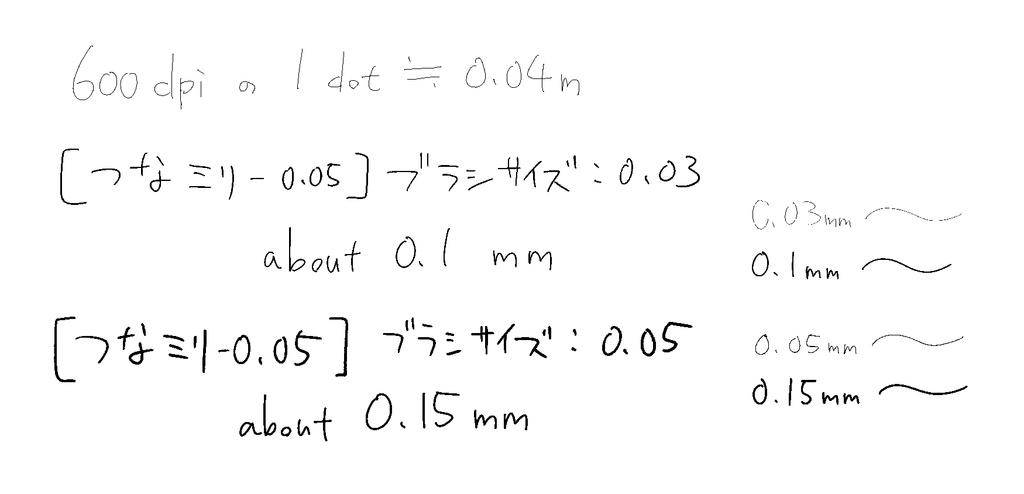 600 dpi の 1 dot ≒ 0.04m
[つなミリ-0.05] ブラシサイズ:0.03
about 0.1 mm
[つなミリ-0.05] ブラシサイズ:0.05
about 0.15 mm
0.03mm
0.1mm
0.05mm
0.15mm